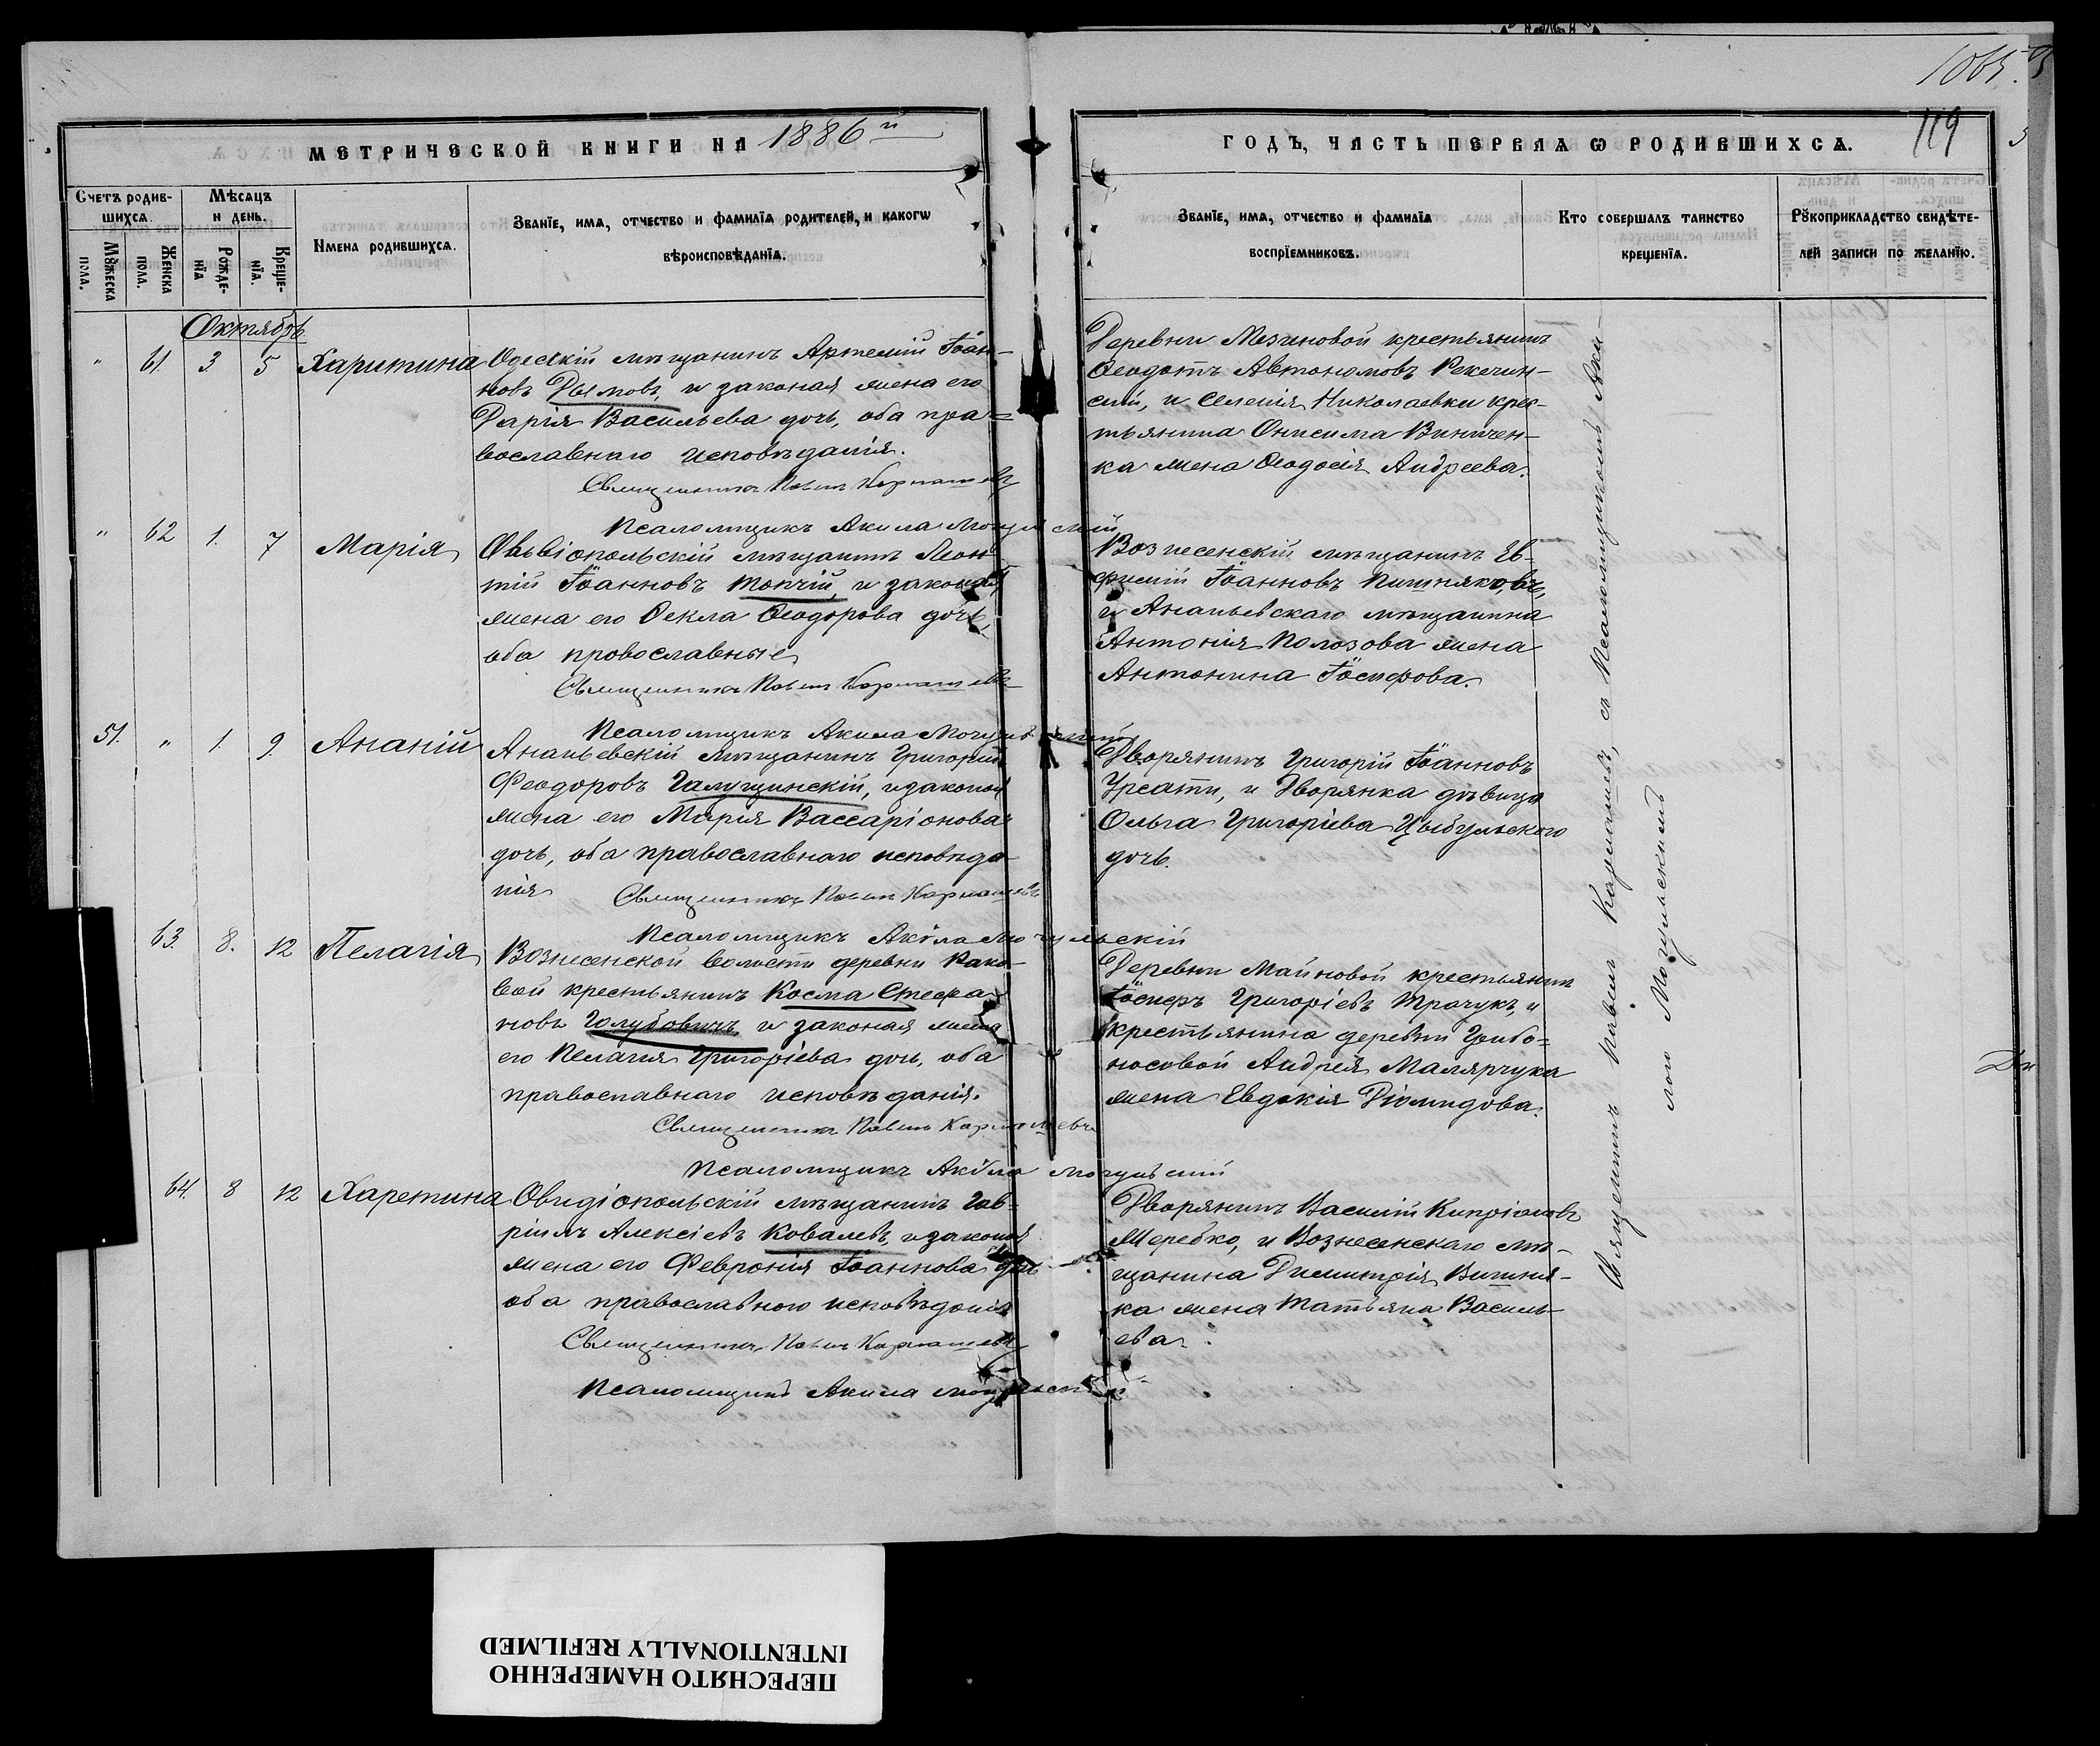 1065.
119
МЕТРИЧЕСКОЙ КНИГИ НА 1886й
ГОДЪ, ЧАСТЬ ПЕРВАЯ Ѡ РОДИВШИХСѦ.
Счетъ родив-
шихсѧ.
Мѣсѧцъ
и день.
Мꙋжеска
пола.
Женска
пола.
Рожде-
нїѧ
Креще-
нїѧ.
Имена родившихсѧ.
Званїе, имѧ, отчество и фамилїѧ родителей, и какогѡ
вѣроисповѣданїѧ.
Званїе, имѧ, отчество и фамилїѧ
воспрїемниковъ.
Кто совершалъ таинство
крещенїѧ.
Рꙋкоприкладство свидѣте-
лей записи по желанїю.
Октябрь
" 61. 3 5 Харитина
Одескій мѣщанинъ Артемій Іоан-
новъ Дымовъ, и законая жена его
Дарія Васильева дочь, оба пра-
вославнаго исповѣданія.
Священникъ Павелъ
Псаломщикъ Акила Могульскій
Деревни Мазиновой крестьянинъ
Ѳеодотъ Автономовъ
и селенія Николаевки крес-
тьянина Онисима Виничен-
ка жена Ѳеодосія Андреева.
" 62 1. 7 Марія
мѣщанинъ Леон-
тій Іоанновъ Топчій, и законая
жена его Ѳекла Ѳеодорова дочь,
оба провославные
Священникъ Павелъ
Псаломщикъ Акила Могульскій
Вознесенскій мѣщанинъ Ев-
фимій Іоанновъ
и Ананьевскаго мѣщанина
Антонія Полозова жена
Антонина Іосифова.
51. " 1. 9. Ананій
Ананьевскій мѣщанинъ Григорій
Феодоровъ Галущинскій, и законая
жена его Марія Вассаріонова
дочь, оба православнаго исповѣда-
нія
Священникъ Павелъ
Псаломщикъ Акила Могульскій
Дворянинъ Григорій Іоанновъ
Урсати, и Дворянка дѣвица
Ольга Григоріева Цыбульского
дочь.
63. 8. 12 Пелагія
Вознесенской волости деревни Рако-
вой крестьянинъ Косма Стефа-
новъ Голубовичъ и законая жена
его Пелагія Григоріева дочь, оба
православнаго исповѣданія.
Священникъ Павелъ
Псаломщикъ Акила Могульскій
Деревни Майновой крестьянинъ
Іосифъ Григоріевъ Трачукъ, и
крестьянина деревни Грибо-
носовой Андрея Малярчука
жена Евдокія Діомидова.
64. 8 12 Харетина
Овидіопольскій мѣщанинъ Гав-
ріилъ Алексіевъ Ковалевъ, и законая
жена его Феврония Іоаннова дочь
оба православного исповѣданія
Священникъ Павелъ
Псаломщикъ Акила Могульскій
Дворянинъ Василій Кипріановъ
Жеребко, и Вознесенскаго мѣ-
щанина Димитрія Вишня-
ка жена Татьяна Василь-
ева.
Священникъ Павелъ съ Псаломщикомъ Аки-
лою Могульскимъ
ПЕРЕСНЯТО НАМЕРЕННО
INTENTIONALLY REFILMED